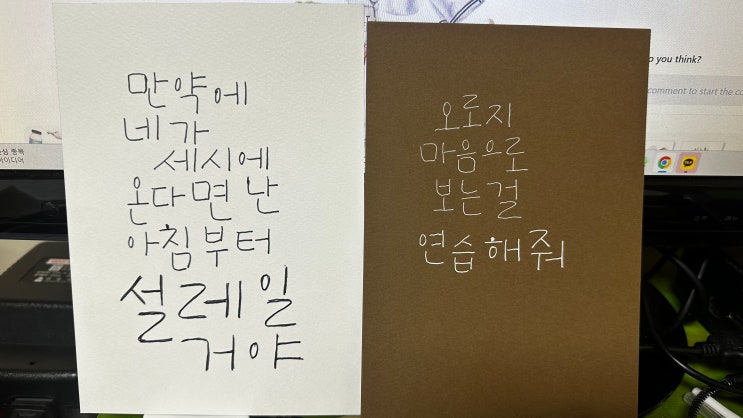 만약에
네가
세시에
온다면 난
아침부터
설레일
거야
오로지
마음으로
보는걸
연습해줘
o you think?
comment to start the co